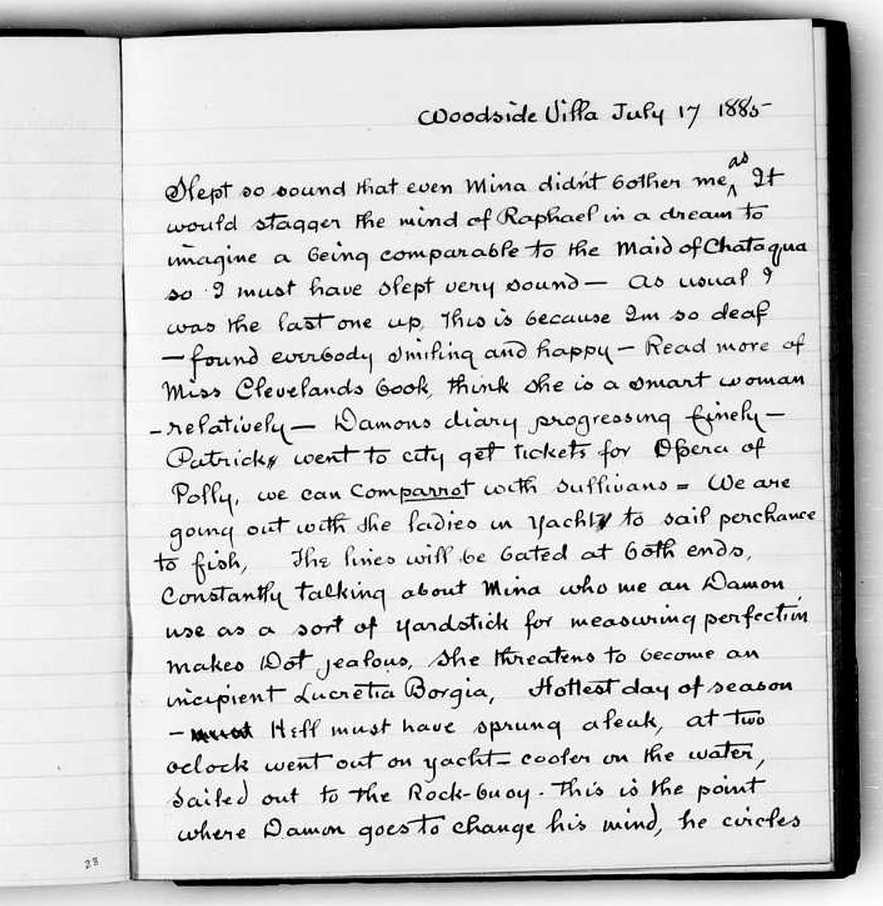 Woodside Villa July 17 1885-
Slept so sound that even Mina didn't bother me as It
would stagger the mind of Raphael in a dream to
imagine a being comparable to the Maid of Chataqua
so I must have slept very sound — As usual I
was the last one up. This is because Im so deaf
— found everbody smiling and happy — Read more of
Miss Clevelands book, think she is a smart woman
- relatively — Damons diary progressing finely —
Patrick went to city get tickets for Opera of
Polly, we can Comparrot with Sullivans = We are
going out with the ladies in yacht to sail perchance
to fish, The lines will be bated at both ends.
Constantly talking about Mina who me an Damon
use as a sort of yardstick for measuring perfection
makes Dot jealous, She threatens to become an
incipient Lucretia Borgia, Hottest day of season
- must Hell must have sprung a leak, at two
oclock went out on yacht = cooler on the water,
sailed out to the Rock-buoy. This is the point
where Damon goes to change his mind, he circles
23